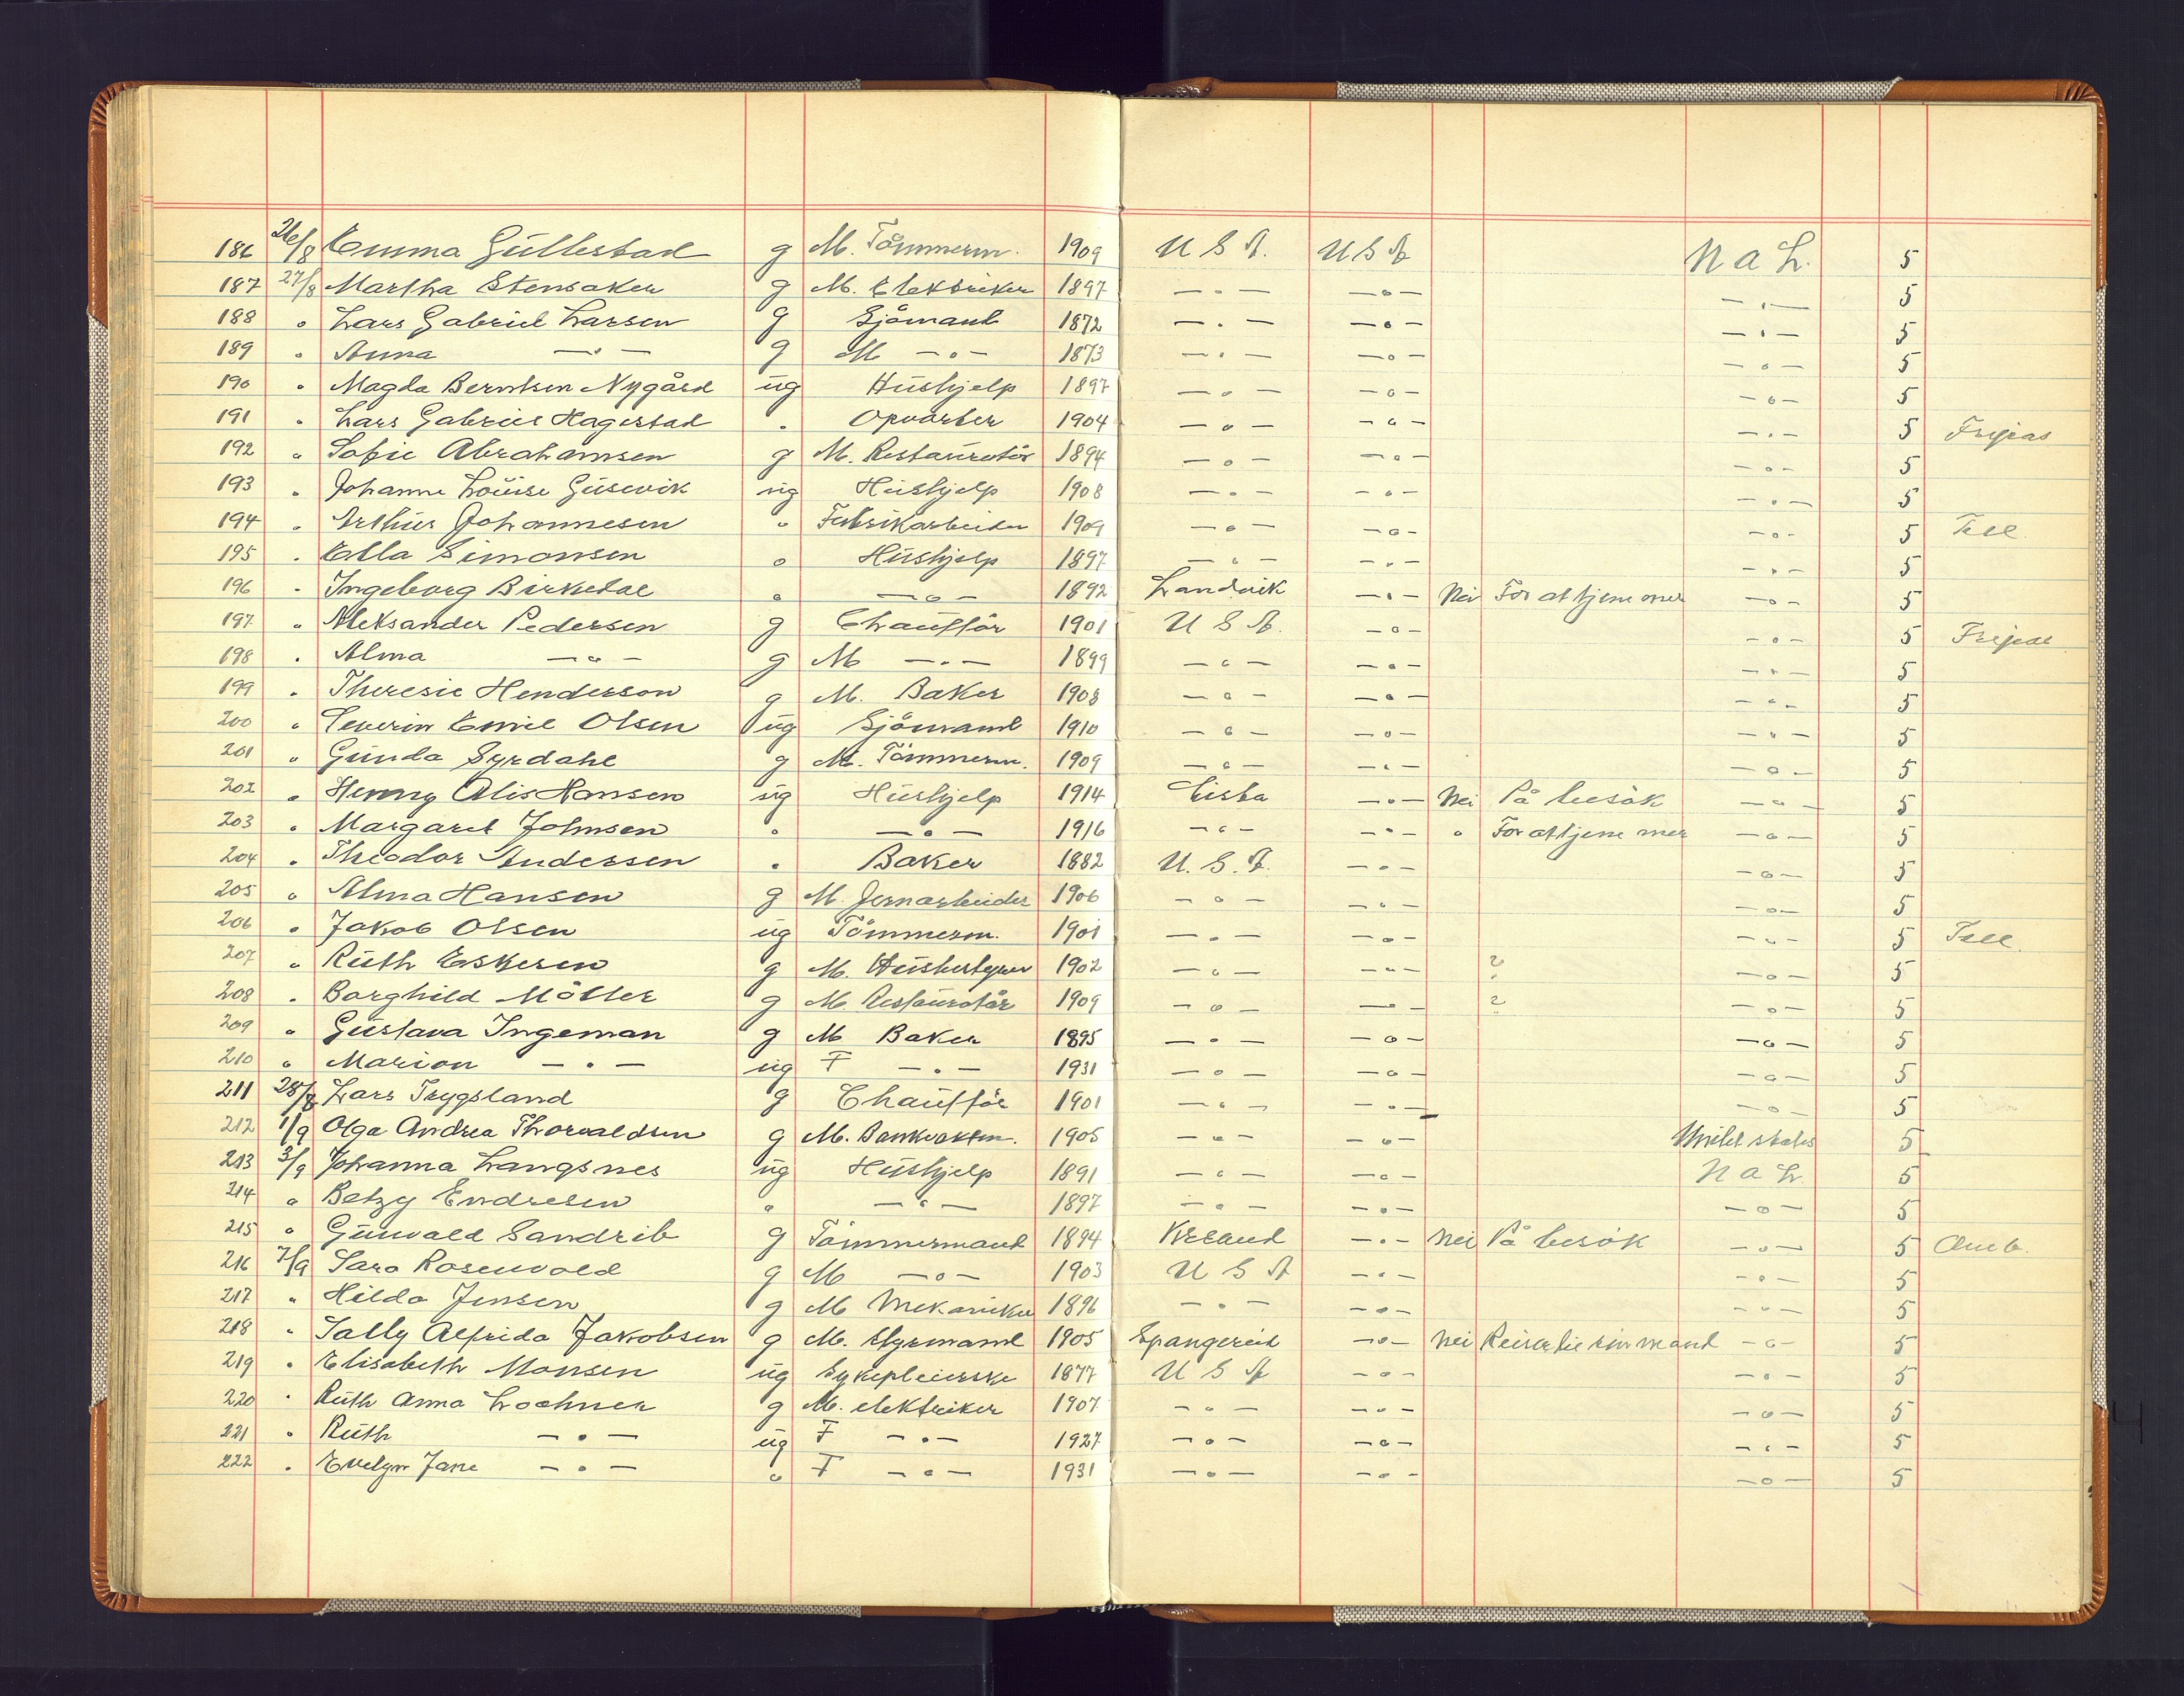 186 26/8 Emma Gullestad g M. Tömmerm. 1909 U S A. U S A N a L. 5
187 27/8 Martha Stensaker g M. Elektriker 1897 — " — — " — — " — 5
188 " Lars Gabriel Larsen g Sjömand 1872 — " — — " — — " — 5
189 " Anna — " — g M — " — 1873 — " — — " — — " — 5
190 " Magda Berntsen Nygård ug Hushjelp 1897 — " — — " — — " — 5
191 " Lars Gabriel Hagestad " Opvarter 1904 — " — — " — — " — 5
192 " Sofie Abrahamsen g M. Restauratör 1894 — " — — " — — " — 5
193 " Johanne Louise Gusevik ug Hushjelp 1908 — " — — " — — " — 5
194 " Arthur Johannesen " Fabrikarbeider 1909 — " — — " — — " — 5
195 " Ella Simonsen " Hushjelp 1897 — " — — " — — " — 5
196 " Ingeborg Birkedal " — " — 1892 Landvik — " — Nei For at tjene mer — " — 5
197 " Aleksander Pedersen g Chaufför 1901 U S A. — " — — " — 5
198 " Alma — " — g M — " — 1899 — " — — " — — " — 5
199 " Theresie Henderson g M. Baker 1908 — " — — " — — " — 5
200 " Severin Emil Olsen ug Sjömand 1910 — " — — " — — " — 5
201 " Gunda Syrdahl g M. Tömmerm. 1909 — " — — " — — " — 5
202 " Henny Alis Hansen ug Hushjelp 1914 Lista — " — Nei På besök — " — 5
203 " Margaret Johnsen " — " — 1916 — " — — " — " For at tjene mer — " — 5
204 " Theodor Andersen " Baker 1882 U. S. A. — " — — " — 5
205 " Alma Hansen g M. Jernarbeider 1906 — " — — " — — " — 5
206 " Jakob Olsen ug Tömmerm. 1901 — " — — " — — " — 5
207 " Ruth Eskesen g M. 1902 — " — — " — ? — " — 5
208 " Borghild Möller g M. Restauratör 1909 — " — — " — ? — " — 5
209 " Gustava Ingeman g M Baker 1895 — " — — " — — " — 5
210 " Marion — " — ug F — " — 1931 — " — — " — — " — 5
211 28/8 Lars Trygsland g Chaufför 1901 — " — — " — — " — 5
212 1/9 Olga Andrea Thorvaldsen g M. 1905 — " — — " — Unitet states 5
213 3/9 Johanna Langsnes ug Hushjelp 1891 — " — — " — N a L 5
214 " Betzy Endresen " — " — 1897 — " — — " — — " — 5
215 " Gunvald Sandrib g Tömmermand 1894 Krsand — " — Nei På besök — " — 5
216 7/9 Sara Rosenvold g M — " — 1903 U S A — " — — " — 5
217 " Hilda Jensen g M Mekaniker 1896 — " — — " — — " — 5
218 " Sally Alfrida Jakobsen g M. Styrmand 1905 Spangereid — " — Nei Reiser til sin mand — " — 5
219 " Elisabeth Monsen ug Sykepleierske 1877 U S A — " — — " — 5
220 " Ruth Anna Lochner g M. elektriker 1907 — " — — " — — " — 5
221 " Ruth — " — ug F — " — 1927 — " — — " — — " — 5
222 " Evelyn Jane — " — " F — " — 1931 — " — — " — — " — 5